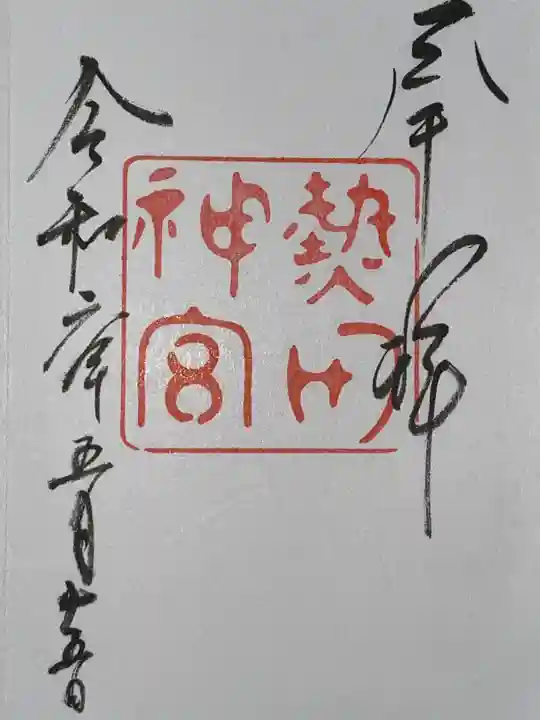 奉拝
熱田
神宮
令和六年五月十五日